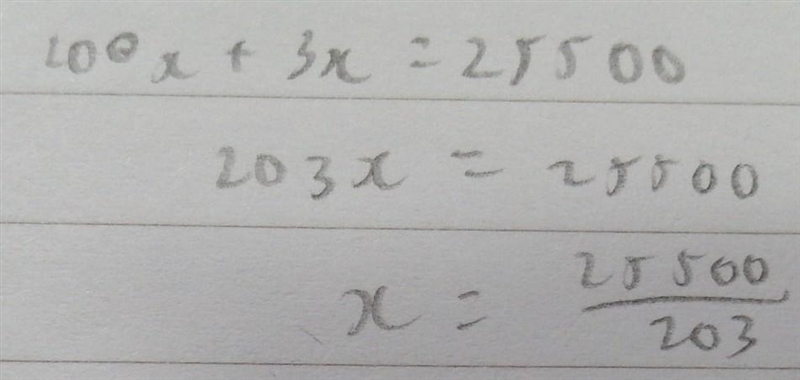 200x + 3x = 25500
203x = 25500
x = 25500/203